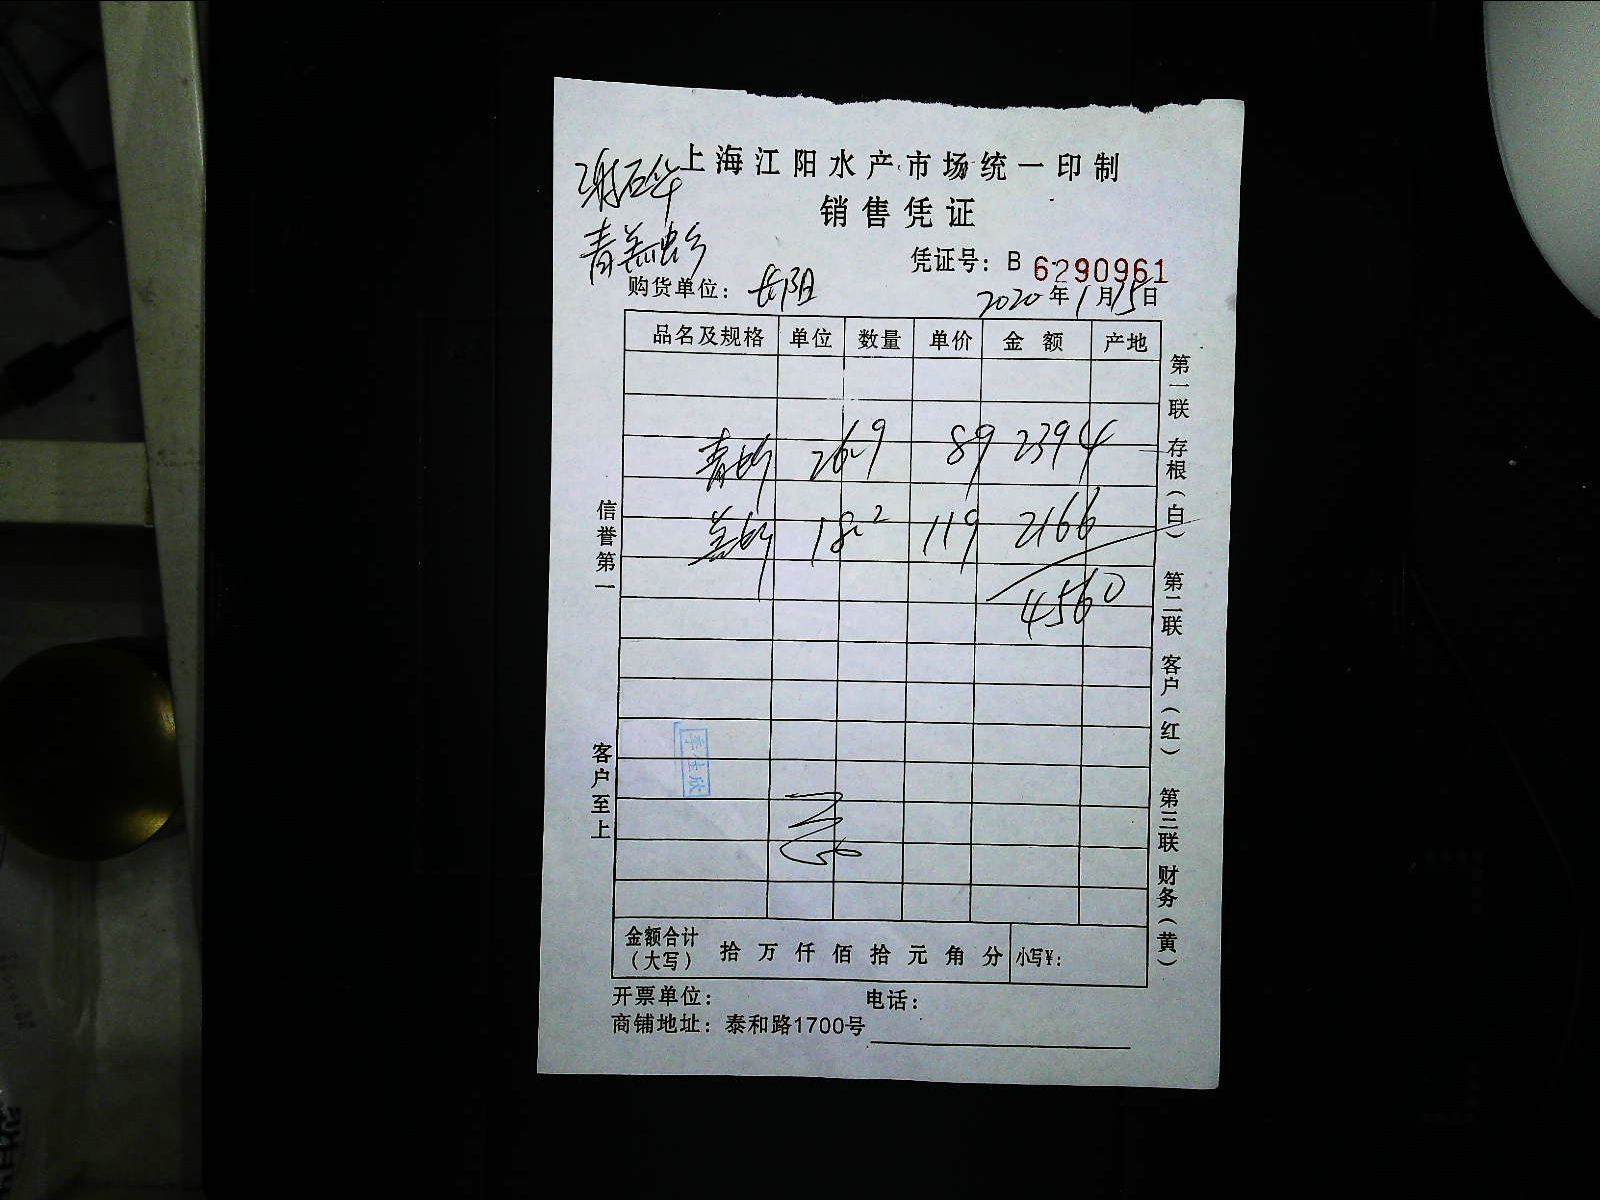 上海江阳水产市场统一印制
谢石华
销售凭证
青羔虫纟
凭证号：B 6290961
购货单位：长阳
2020年1月15日
品名及规格 单位 数量 单价 金额 产地
青 26.9 89 2394
羔 18.2 119 2166
4560
信誉第一
客户至上
第一联 存根（白） 第二联 客户（红） 第三联 财务（黄）
金额合计（大写） 拾 万 仟 佰 拾 元 角 分 小写¥：
开票单位： 电话：
商铺地址：泰和路1700号